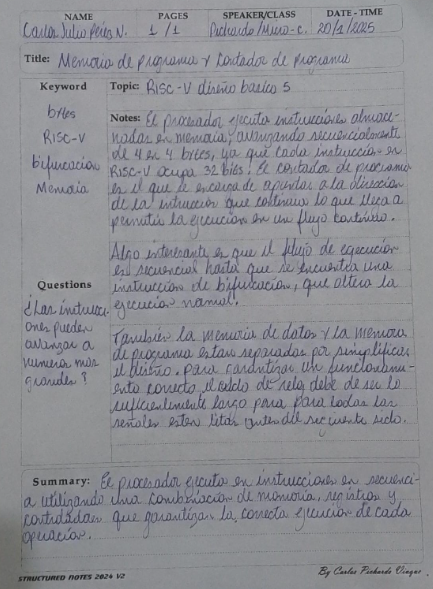 NAME PAGES SPEAKER/CLASS DATE - TIME
Carlos Julio Pérez N. 1/1 Pichardo/Micro-c. 20/2/2025
Title: Memoria de programa y Contador de programa
Keyword Topic: RISC-V diseño basico 5
bytes
RISC-V
bifurcacion
Memoria
Notes: El procesador ejecuta instrucciones almace-
nadas en memoria, avanzando secuencialmente
de 4 en 4 bytes, ya que cada instruccion en
RISC-V ocupa 32 bits. El contador de programa
es el que se encarga de apuntar a la direccion
de la intruccion que continua lo que lleva a
permitir la ejecucion en un flujo continuo.
Algo interesante es que el flujo de egecucion
es secuencial hasta que se encuentra una
instruccion de bifurcacion, que altera la
ejecucion normal.
Questions
¿Las instrucci-
ones pueden
avanzar a
numero mas
grandes?
Tambien la memoria de datos y la memoria
de programa estan separadas por simplificar
el diseño. Para garantizar un funcionami-
ento correcto, el ciclo de reloj debe de ser lo
suficientemente largo para para todas las
señales esten listas antes del siguiente ciclo.
Summary: El procesador ejecuta en instrucciones en secuenci-
a utilizando una combinacion de memoria, registros y
que garantizan la correcta ejecucion de cada
operacion.
STRUCTURED NOTES 2024 V2 By Carlos Pichardo Viuque